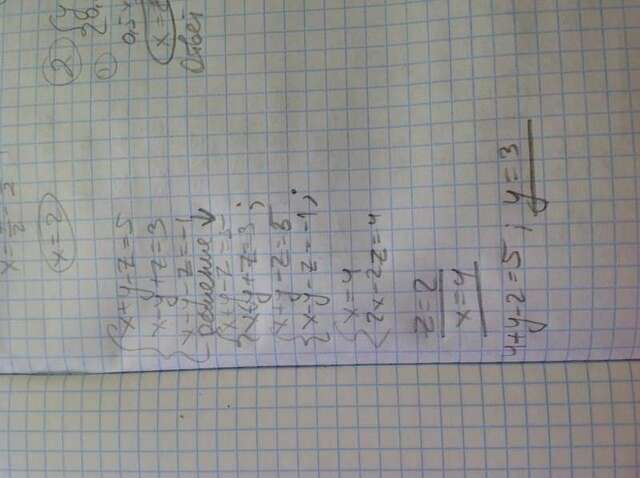 x = 2
x+y-z=5
x-y+z=3
x-y-z=-1
решение ↓
x+y-z=5
x-y+z=3;
x+y-z=5
x-y-z=-1;
x=4
2x-2z=4
z=2
x=4
4+y-2=5; y=3
2 { y
0,5x
x=
Ответ